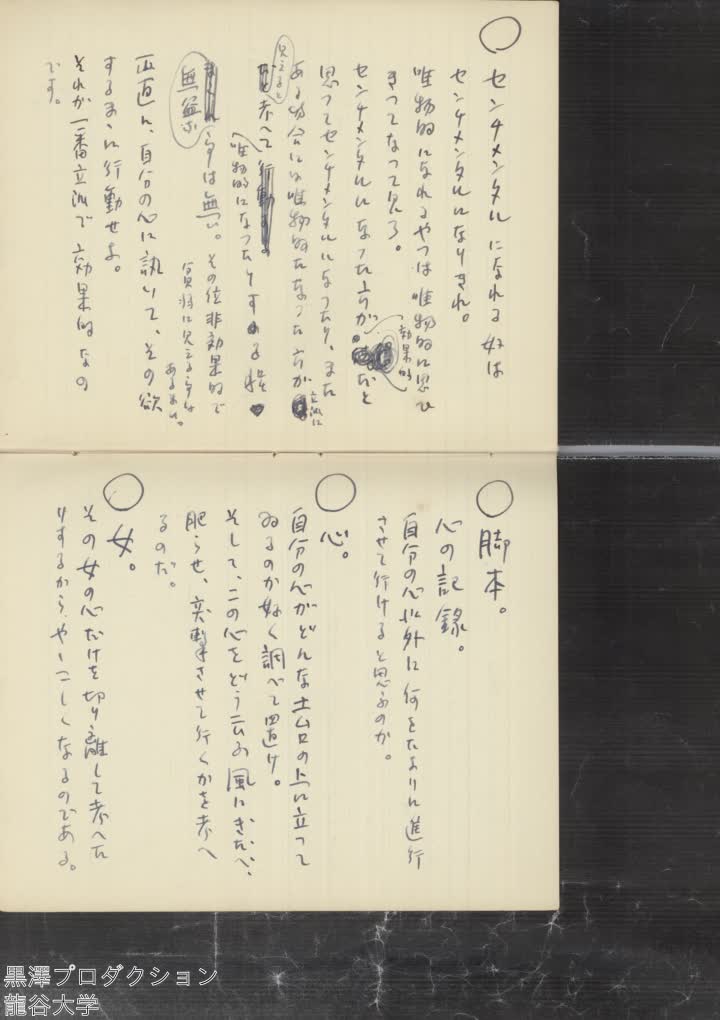 ○ センチメンタルになれる奴は
センチメンタルになりきれ。
唯物的になれるやつは唯物的に思ひ
きつてなつて見ろ。
センチメンタルになつた方が効果的だと
思つてセンチメンタルになつたり、また
ある場合には唯物的になつた方が立派に
見えると考へて
唯物的になつたりする程
無益な事は無い。その位非効果的で
貧弱に見える事は
あるまい。
正直に、自分の心に訊いて、その欲
するまゝに行動せよ。
それが一番立派で効果的なの
です。
○ 脚本。
心の記録。
自分の心以外に何をたよりに進行
させて行けると思ふのか。
○ 心。
自分の心がどんな土台の上に立つて
ゐるのか好く調べて置け。
そして、この心をどう云ふ風にきたへ、
肥らせ、突撃させて行くかを考へ
るのだ。
○ 女。
その女の心だけを切り離して考へた
りするから、やゝこしくなるのである。
黒澤プロダクション
龍谷大学